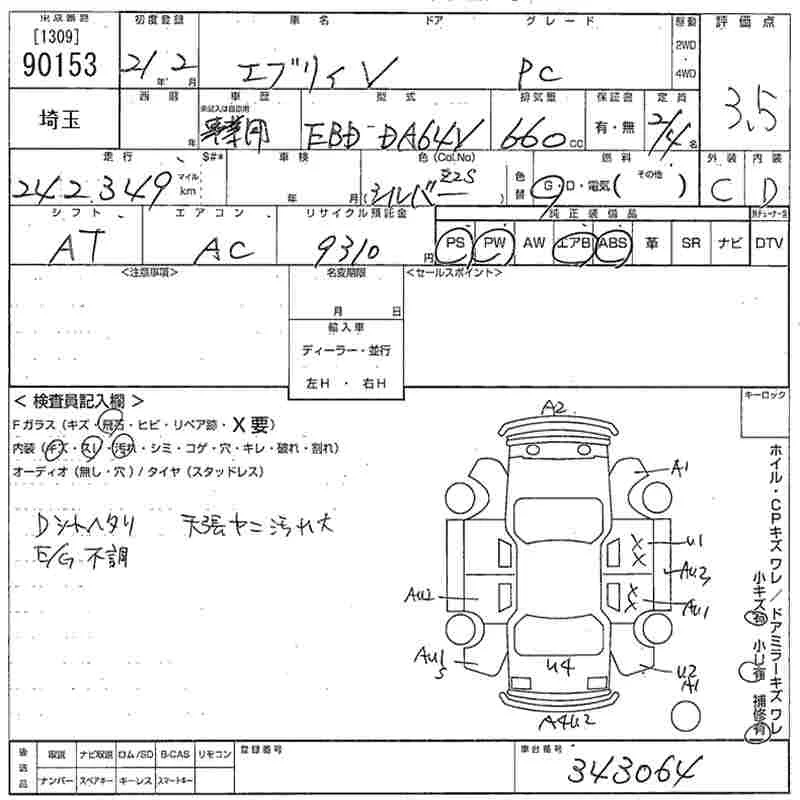 [1309]
90153
埼玉
初度登録
21年 2月
車名 ドア グレード
エブリィV PC
駆動
2WD
4WD
評価点
3.5
西暦
年
車歴
型式
EBD-DA64V
排気量
660cc
保証書
有・無
定員
2/4名
走行
242,349
マイル
km
$#*
車検
年 月
色(Col.No)
シルバー Z2S
色替
燃料
G・D・電気( その他 )
外装
C
内装
D
シフト
AT
エアコン
AC
リサイクル預託金
9310円
純正装備品
PS PW AW エアB ABS 革 SR ナビ DTV
<注意事項>
名変期限
月 日
輸入車
ディーラー・並行
左H ・ 右H
<セールスポイント>
< 検査員記入欄 >
キーロック
Fガラス(キズ・飛石・ヒビ・リペア跡・X要)
内装(キズ・スレ・汚れ・シミ・コゲ・穴・キレ・破れ・割れ)
オーディオ(無し・穴)/タイヤ(スタッドレス)
Dシートヘタリ 天張ヤニ汚れ大
E/G 不調
A2
A1
U1
AU3
AU1
AU2
AU1
S
U4
U2
A1
A4U2
ホイル・CPキズワレ/ドアミラーキズワレ
小キズ有 小U有 補修有
後送品
取説 ナビ取説 ロム/SD B-CAS リモコン
ナンバー スペアキー キーレス スマートキー
登録番号
車台番号
343064